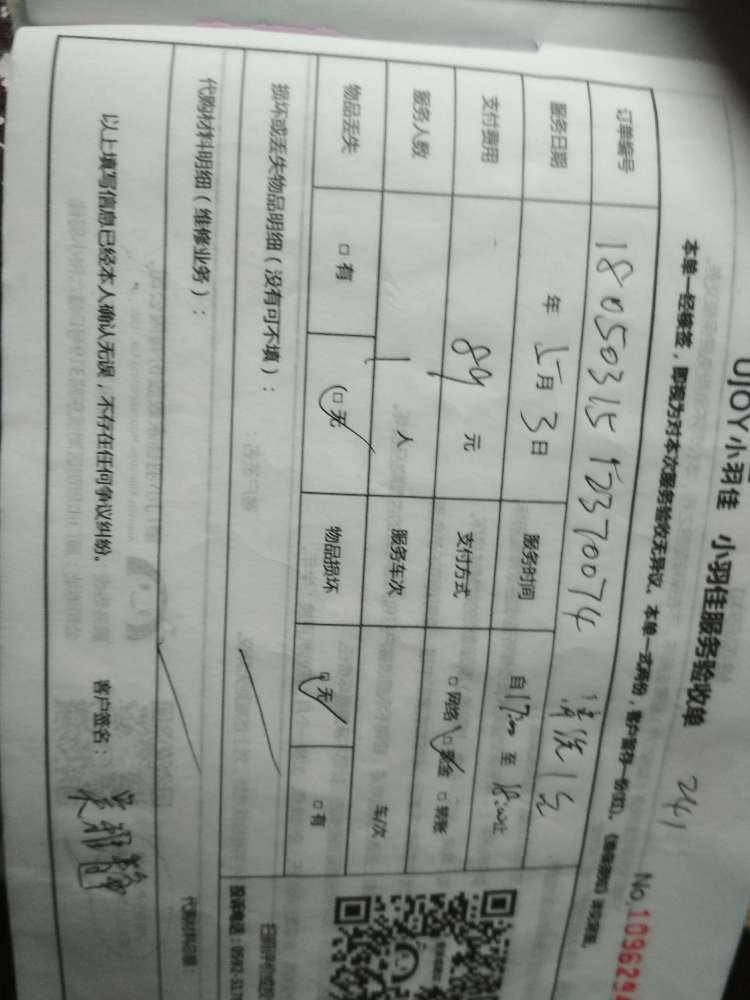 UJOY小羽佳 小羽佳服务验收单 241
No.109629
本单一经缘签，即视为对本次服务验收无异议。本单一式两份，客户留存一份(红)。
订单编号 18050315152370074 清洗1台
服务日期 年 5月 3日 服务时间 自17:00 至 18:00止
支付费用 89 元 支付方式 □网络 □现金 □转账
服务人数 1 人 服务车次 车/次
物品丢失 □有 □无 物品损坏 □无 □有
损坏或丢失物品明细（没有可不填）：
代购材料明细（维修业务）：
以上填写信息已经本人确认无误，不存在任何争议纠纷。 客户签名：